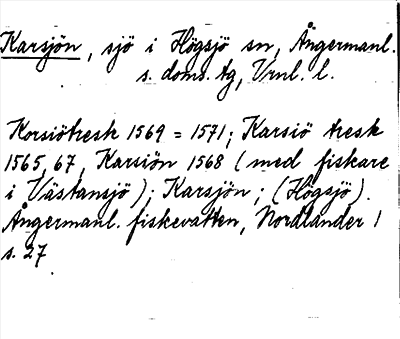 Karsjön, sjö i Högsjö sn, Ångermanl.
s. doms. tg, Vrnl. l.
Korsiötresk 1569 = 1571; Karsiö tresk
1565, 67, Karsiön 1568 (med fiskare
i Västansjö); Karsjön; (Högsjö).
Ångermanl. fiskevatten, Nordlander 1
s. 27